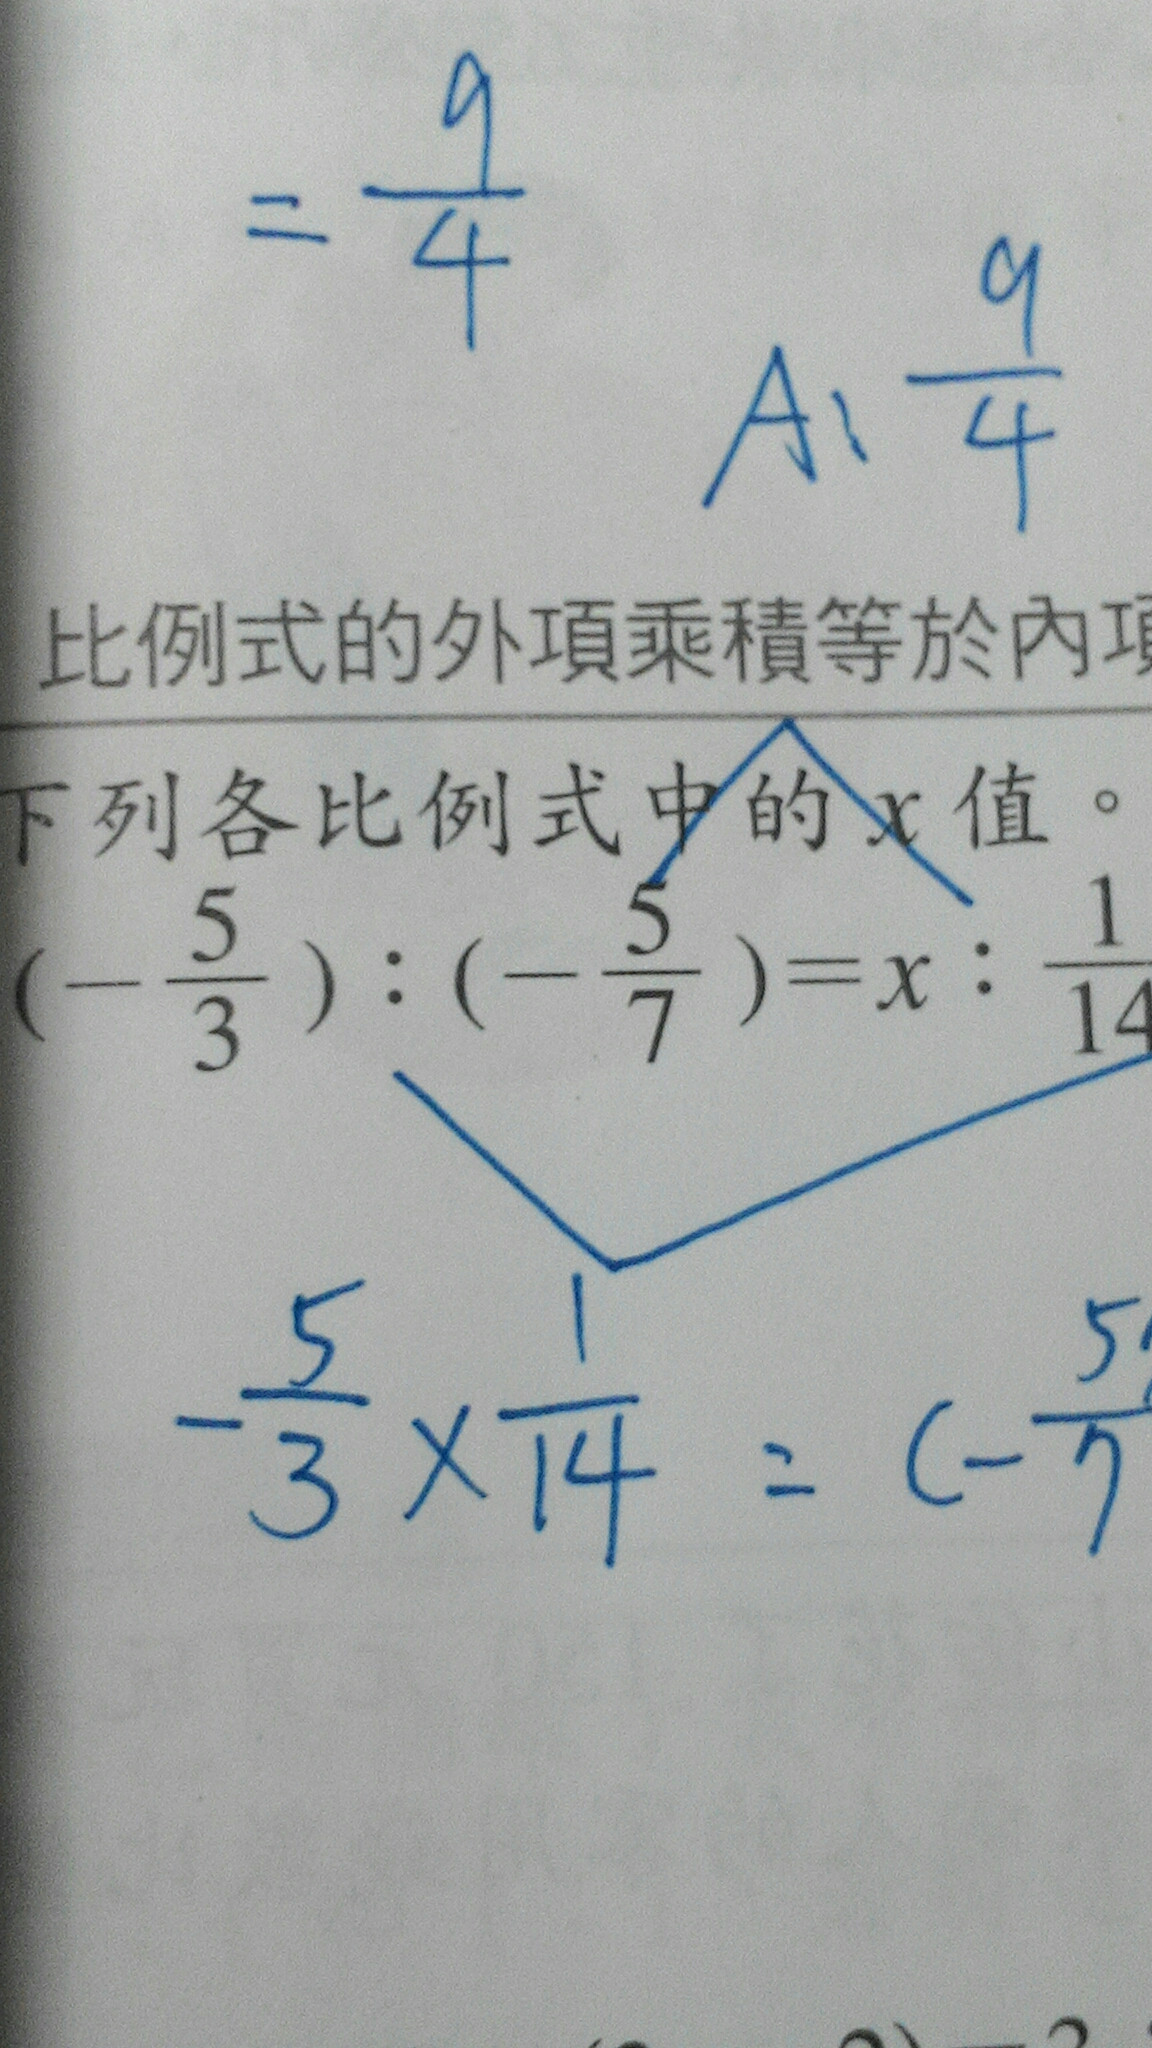 = 9/4
A、9/4
比例式的外項乘積等於內項
下列各比例式中的 x 值。
(-5/3):(-5/7)=x:1/14
-5/3 × 1/14 = (-5/7